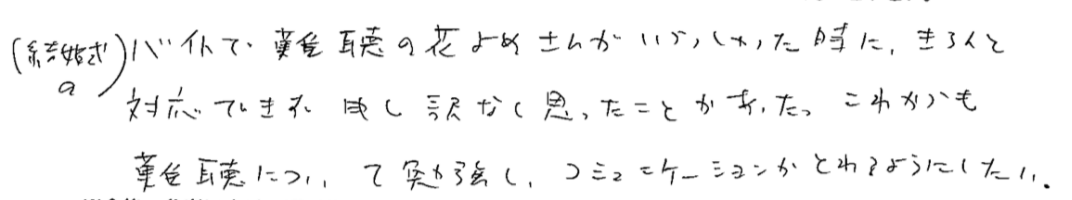 (結婚式の)バイトで難聴の花よめさんがいらっしゃった時に、きちんと
対応できず、申し訳なく思ったことがあった。これからも
難聴について勉強し、コミュニケーションがとれるようにしたい。